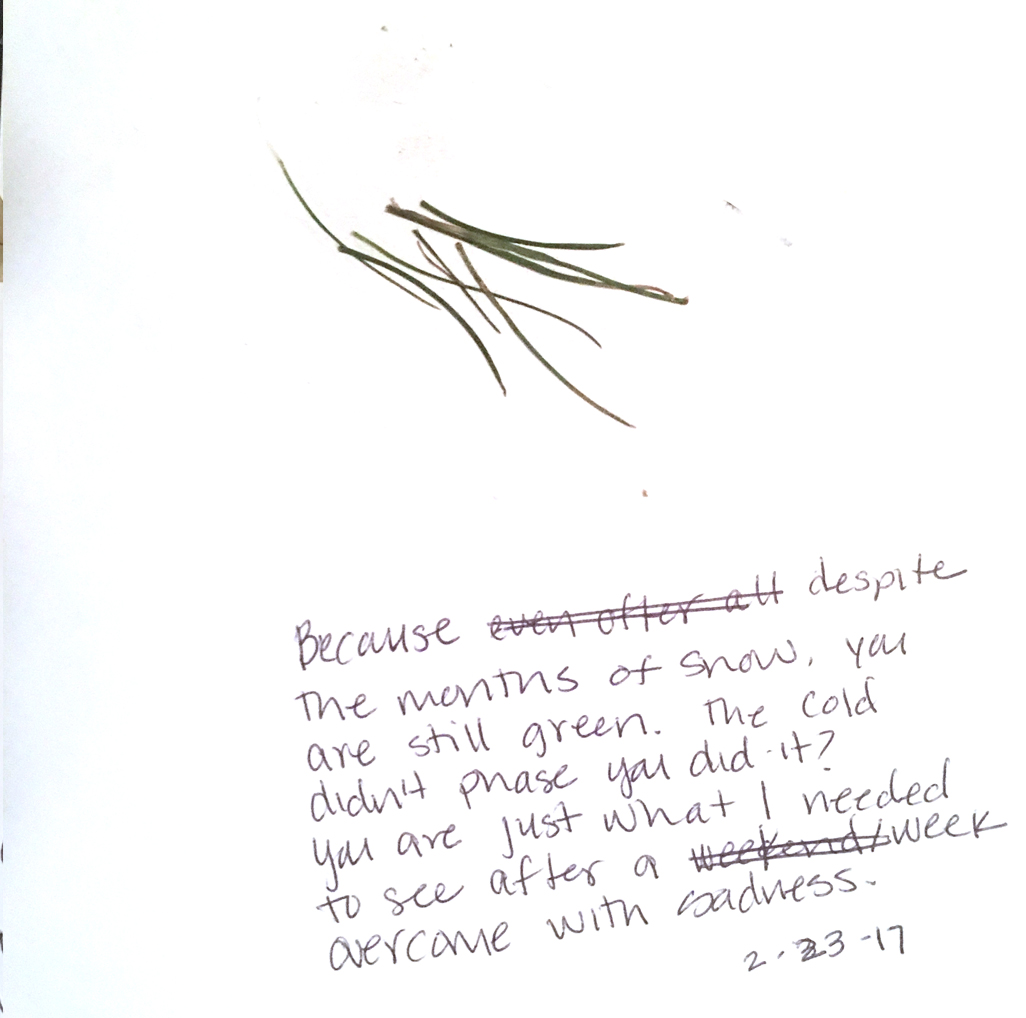 Because even after all despite
the months of snow, you
are still green. The cold
didn't phase you did it?
You are just what I needed
to see after a weekend/week
overcome with sadness.
2.23-17